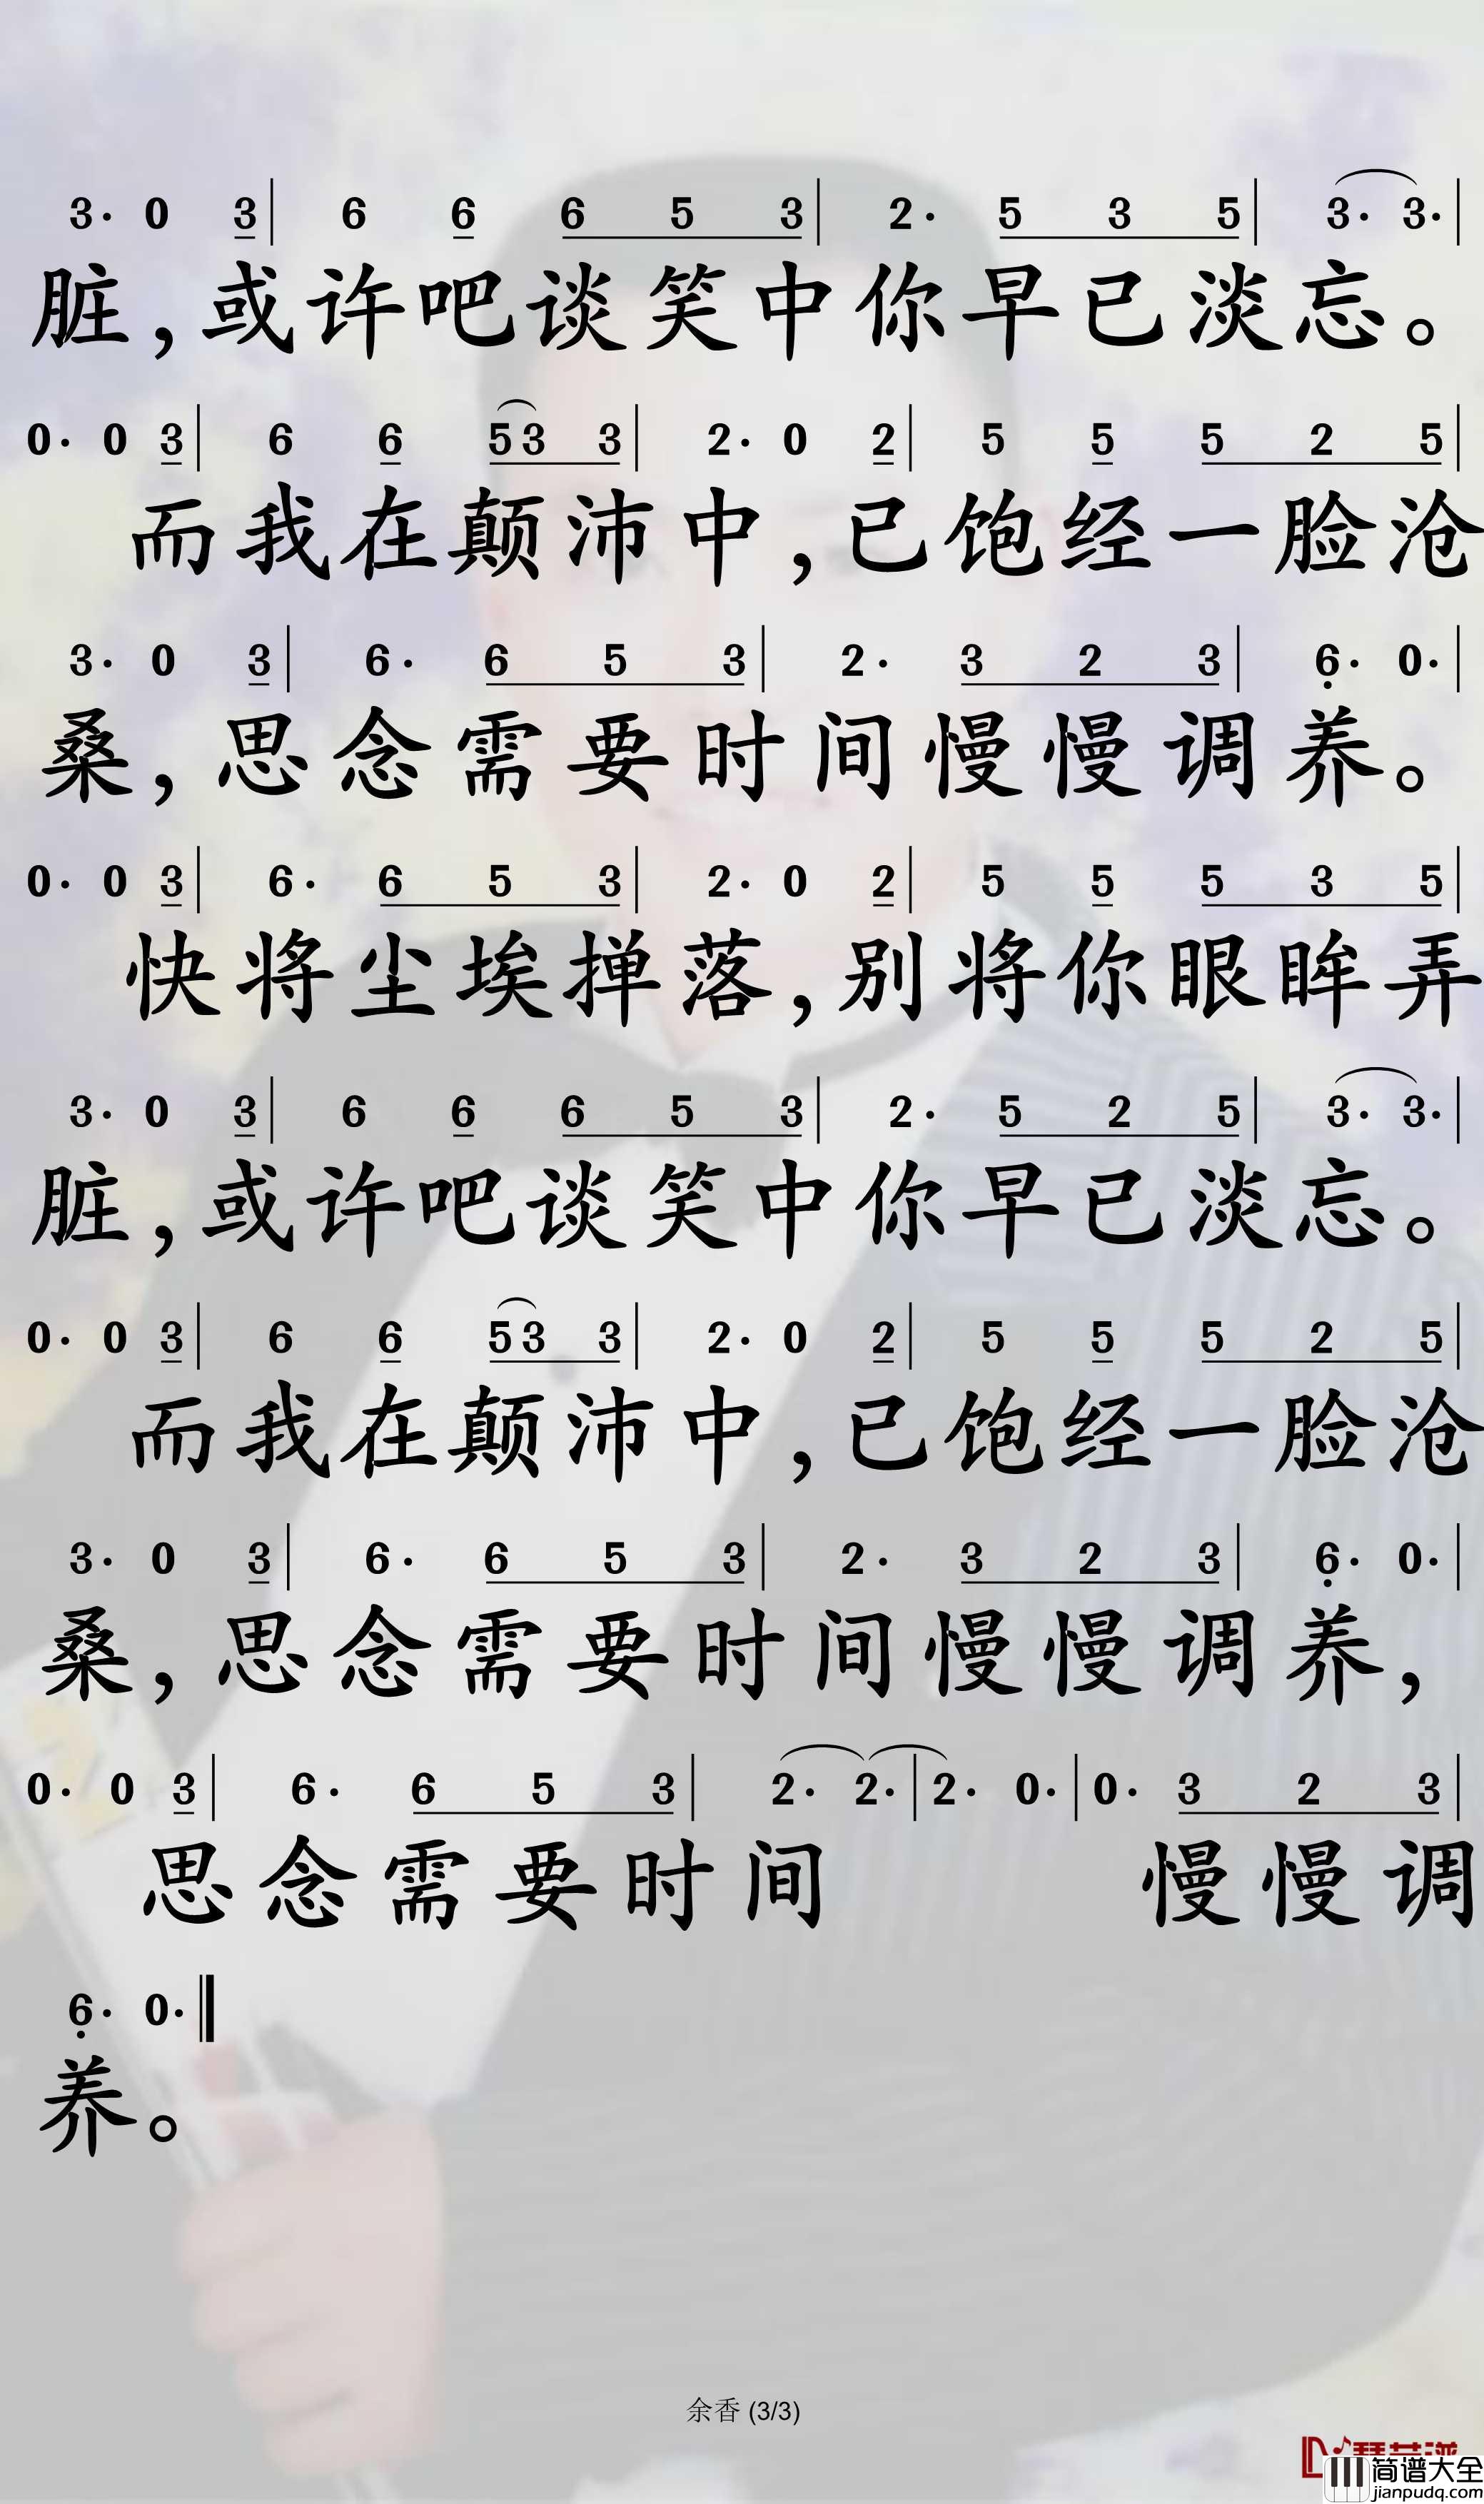 3· 0 3| 6 6 6 5 3| 2· 5 3 5| 3· 3·|
脏，或许吧谈笑中你早已淡忘。
0· 0 3| 6 6 53 3| 2· 0 2| 5 5 5 2 5|
而我在颠沛中，已饱经一脸沧
3· 0 3| 6· 6 5 3| 2· 3 2 3| 6̣· 0·|
桑，思念需要时间慢慢调养。
0· 0 3| 6· 6 5 3| 2· 0 2| 5 5 5 3 5|
快将尘埃掸落，别将你眼眸弄
3· 0 3| 6 6 6 5 3| 2· 5 2 5| 3· 3·|
脏，或许吧谈笑中你早已淡忘。
0· 0 3| 6 6 53 3| 2· 0 2| 5 5 5 2 5|
而我在颠沛中，已饱经一脸沧
3· 0 3| 6· 6 5 3| 2· 3 2 3| 6̣· 0·|
桑，思念需要时间慢慢调养，
0· 0 3| 6· 6 5 3| 2· 2·|2· 0·|0· 3 2 3|
思念需要时间 慢慢调
6̣· 0·‖
养。
余香 (3/3)
简谱大全
jianpudq.com